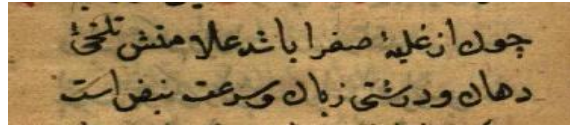 چون از غلبهٔ صفرا باشد علامتش تلخیٔ
دهان و درشتی زبان و سرعت نبض است